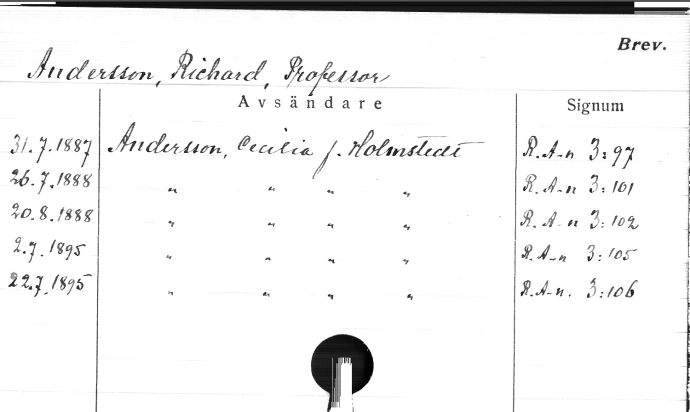 Brev.
Andersson, Richard, Professor
Avsändare Signum
31.7.1887 Andersson, Cecilia f. Holmstedt R.A-n 3:97
26.7.1888 " " " " R.A-n 3:101
20.8.1888 " " " " R.A-n 3:102
2.7.1895 " " " " R.A-n 3:105
22.7.1895 " " " " R.A-n. 3:106